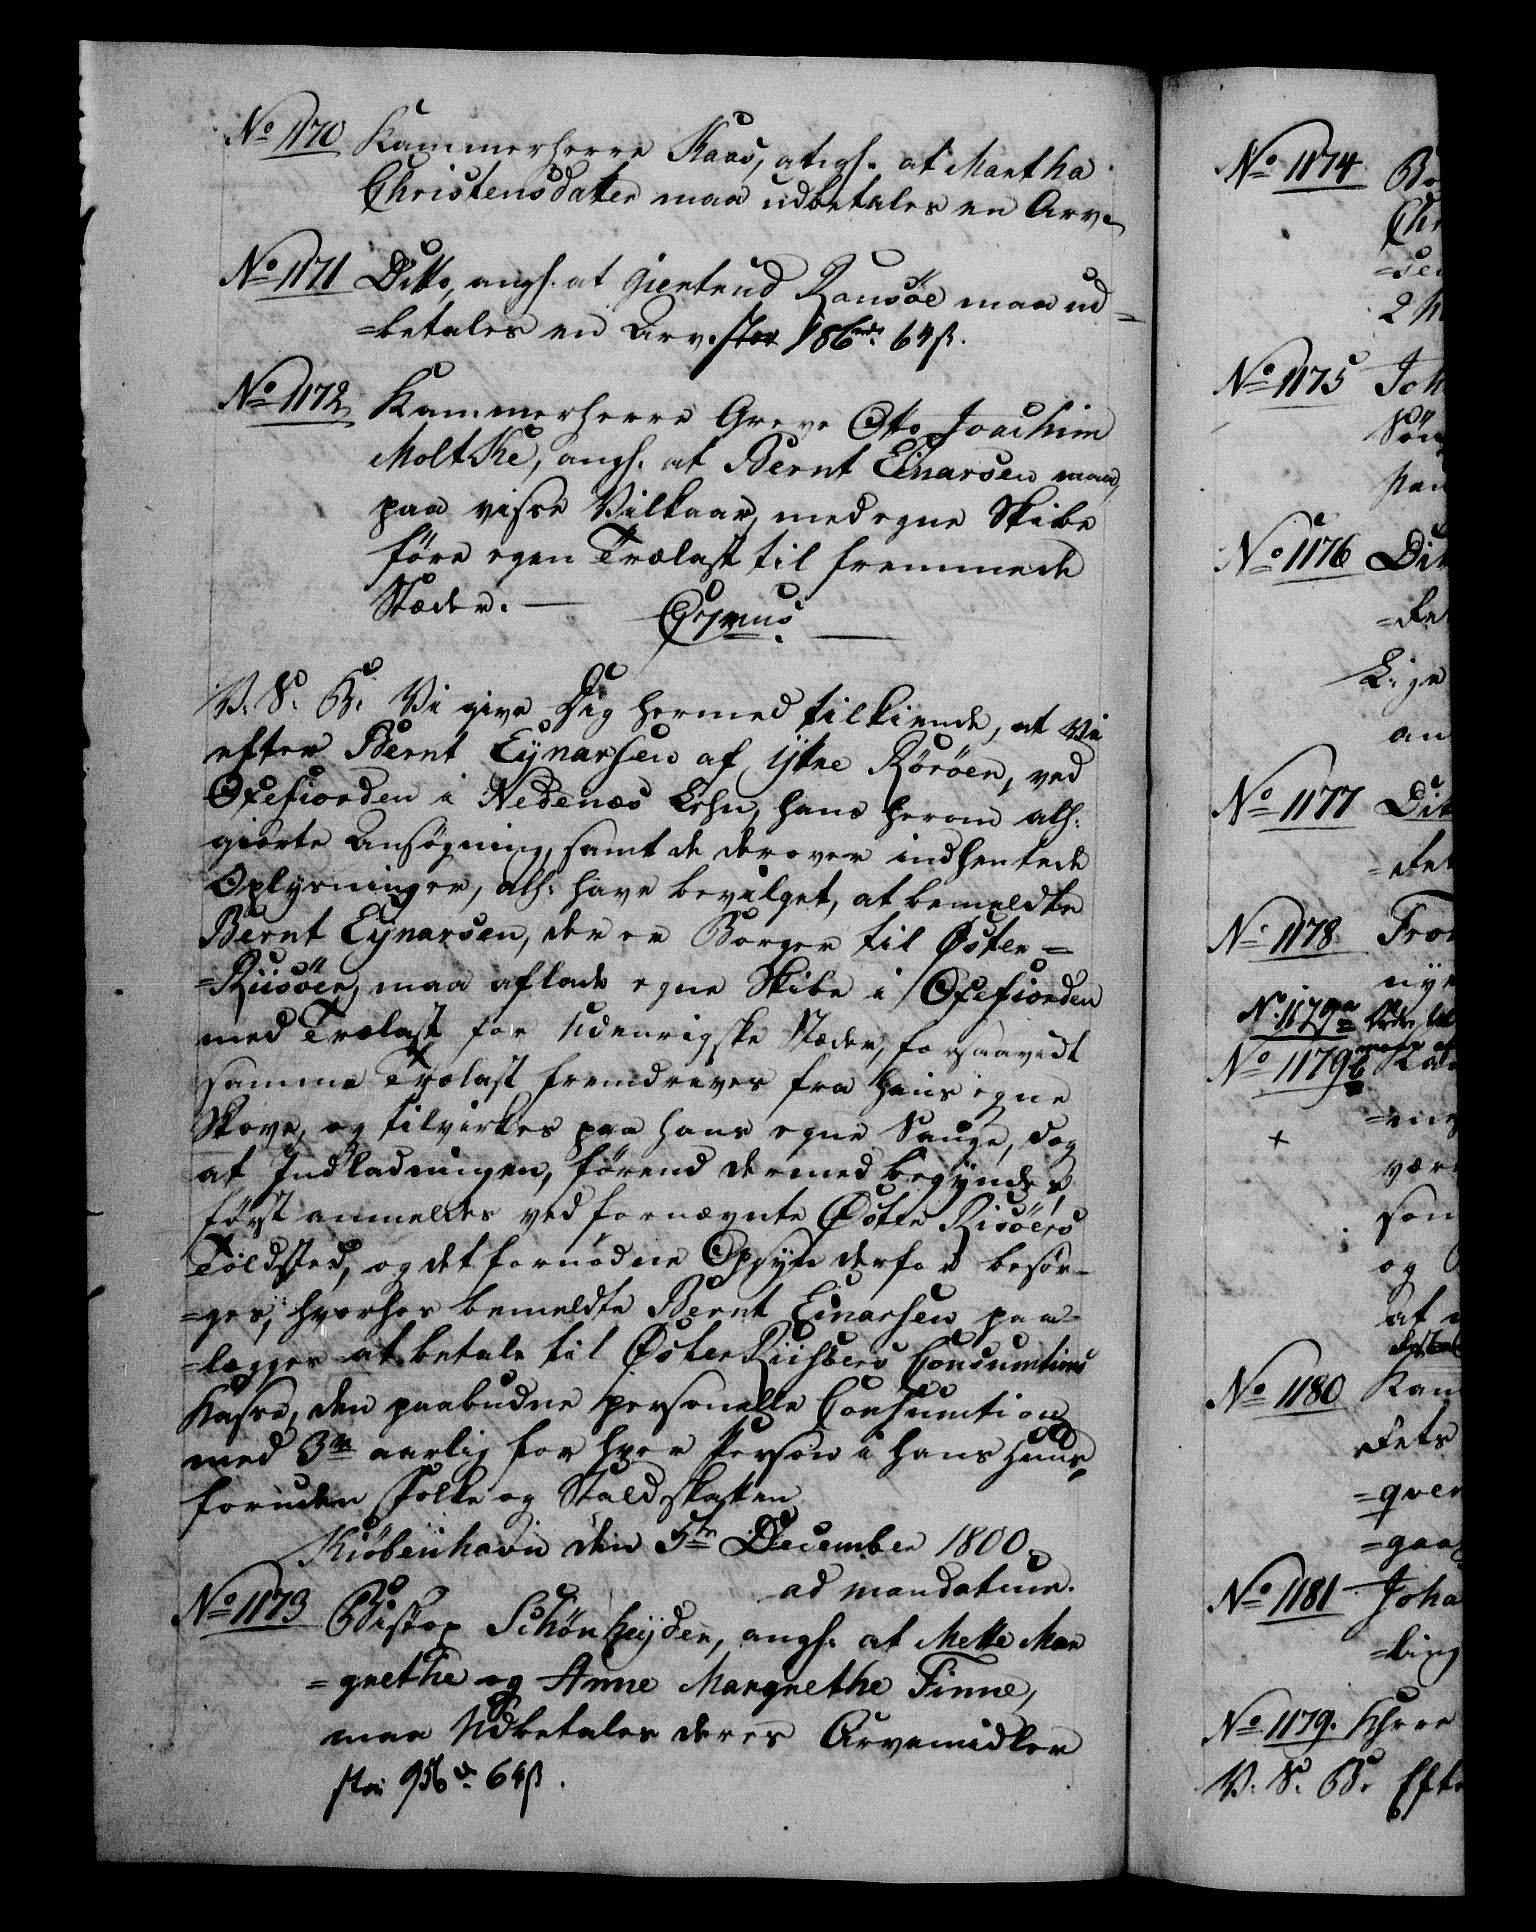 No 1170 Kammerherre Kaas, angh. at Martha
Christensdatter maa udbetales en Arv.
No 1171 Ditto, angh. at Giertrud Ransöe maa ud
=betales en Arv, stor 186 rd. 64 ß.
No 1172 Kammerherre Greve Otto Joachim
Moltke, angh. at Bernt Einarsen maa,
paa visse Vilkaar, med egne Skibe
före egen Trælast til fremmede
Stæder.
V. S. G. Vi give Dig hermed tilkiende, at Vi
efter Bernt Eÿnarsen af Ÿtre Röröen, ved
Oxefiorden i Nedenæs Lehn, hans herom alh:
giorte Ansøgning, samt de derover indhentede
Oplysninger, alh: have bevilget, at bemeldte
Bernt Eÿnarsen, der er Borger til Øster=
=Riisöer, maa aflade egne Skibe i Oxefiorden
med Trælast for Udenrigske Stæder, forsaavidt
samme Trælast fremdrives fra hans egne
Skove, og tilvirkes paa hans egne Sauge, dog
at Indladningen, förend dermed begÿndes,
först anmeldes ved fornævnte Øster Risöers
Toldsted, og det fornödne Opsÿn derfor besör=
=ges, hvorhos bemeldte Bernt Einarsen paa=
=lægges at betale til Øster Riisöers Consumtions
Kasse, den paabudne personelle Consumtion
med 3 aarlig for hver Person i hans Huus,
foruden Folke og Staldskatten
Kiöbenhavn den 5te December 1800.
ad mandatum.
No 1173 Biskop Schönheÿder, angh. at Mette Mar
=grethe og Anne Margrethe Finne,
maa Udbetales deres Arvemidler
stor 956 rd. 64 ß.
No 1174
Chr
2
No 1175 Joh
Sön
No 1176 Dit
Lige
an
No 1177 Dit
No 1178 Fro
nye
No. 1179 a
No 1179 b
=en
vær
som
og
at
No 1180 Kam
dets
=qver
=gaa
No 1181 Joha
=ling
No 1179.
V. S. G. Eft